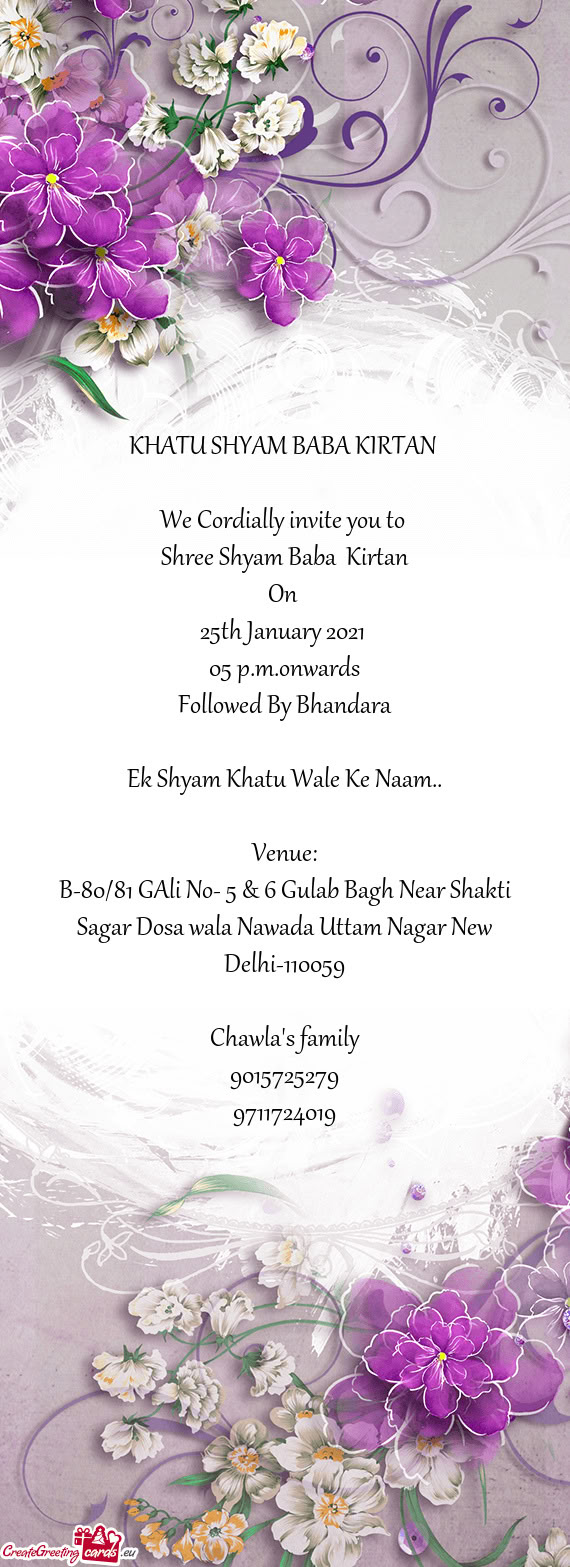 KHATU SHYAM BABA KIRTAN
We Cordially invite you to
Shree Shyam Baba  Kirtan
On
25th January 2021
05 p.m.onwards
Followed By Bhandara
Ek Shyam Khatu Wale Ke Naam..
Venue:
B-80/81 GAli No- 5 & 6 Gulab Bagh Near Shakti
Sagar Dosa wala Nawada Uttam Nagar New
Delhi-110059
Chawla's family
9015725279
9711724019
CreateGreeting cards .eu